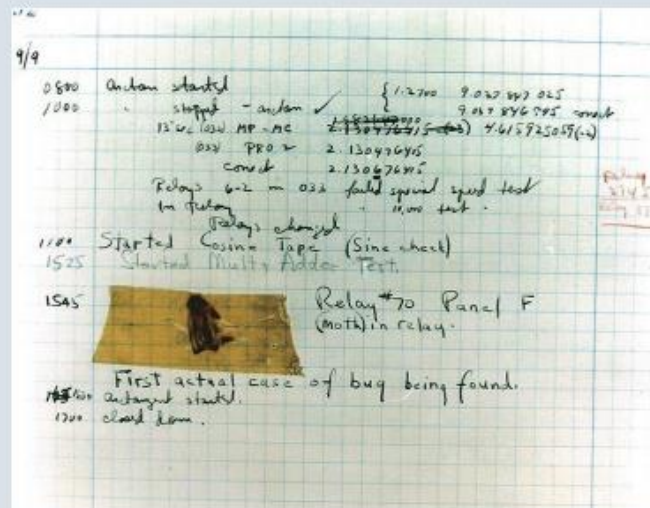 9/9
0800 antan started { 1.2700 9.037 847 025
1000 " stopped - antan ✓ 9.037 846 795 correct
13"uc (032) MP-MC 2.130476415 4.615925059(-2)
(033) PRO 2 2.130476415
correct 2.130676415
Relays 6-2 in 033 failed special speed test
in relay " 10,000 test.
Relays changed
1100 Started Cosine Tape (Sine check)
1525 Started Mult+Adder Test.
1545 Relay #70 Panel F
(Moth) in relay.
First actual case of bug being found.
1630 antangent started.
1700 closed down.